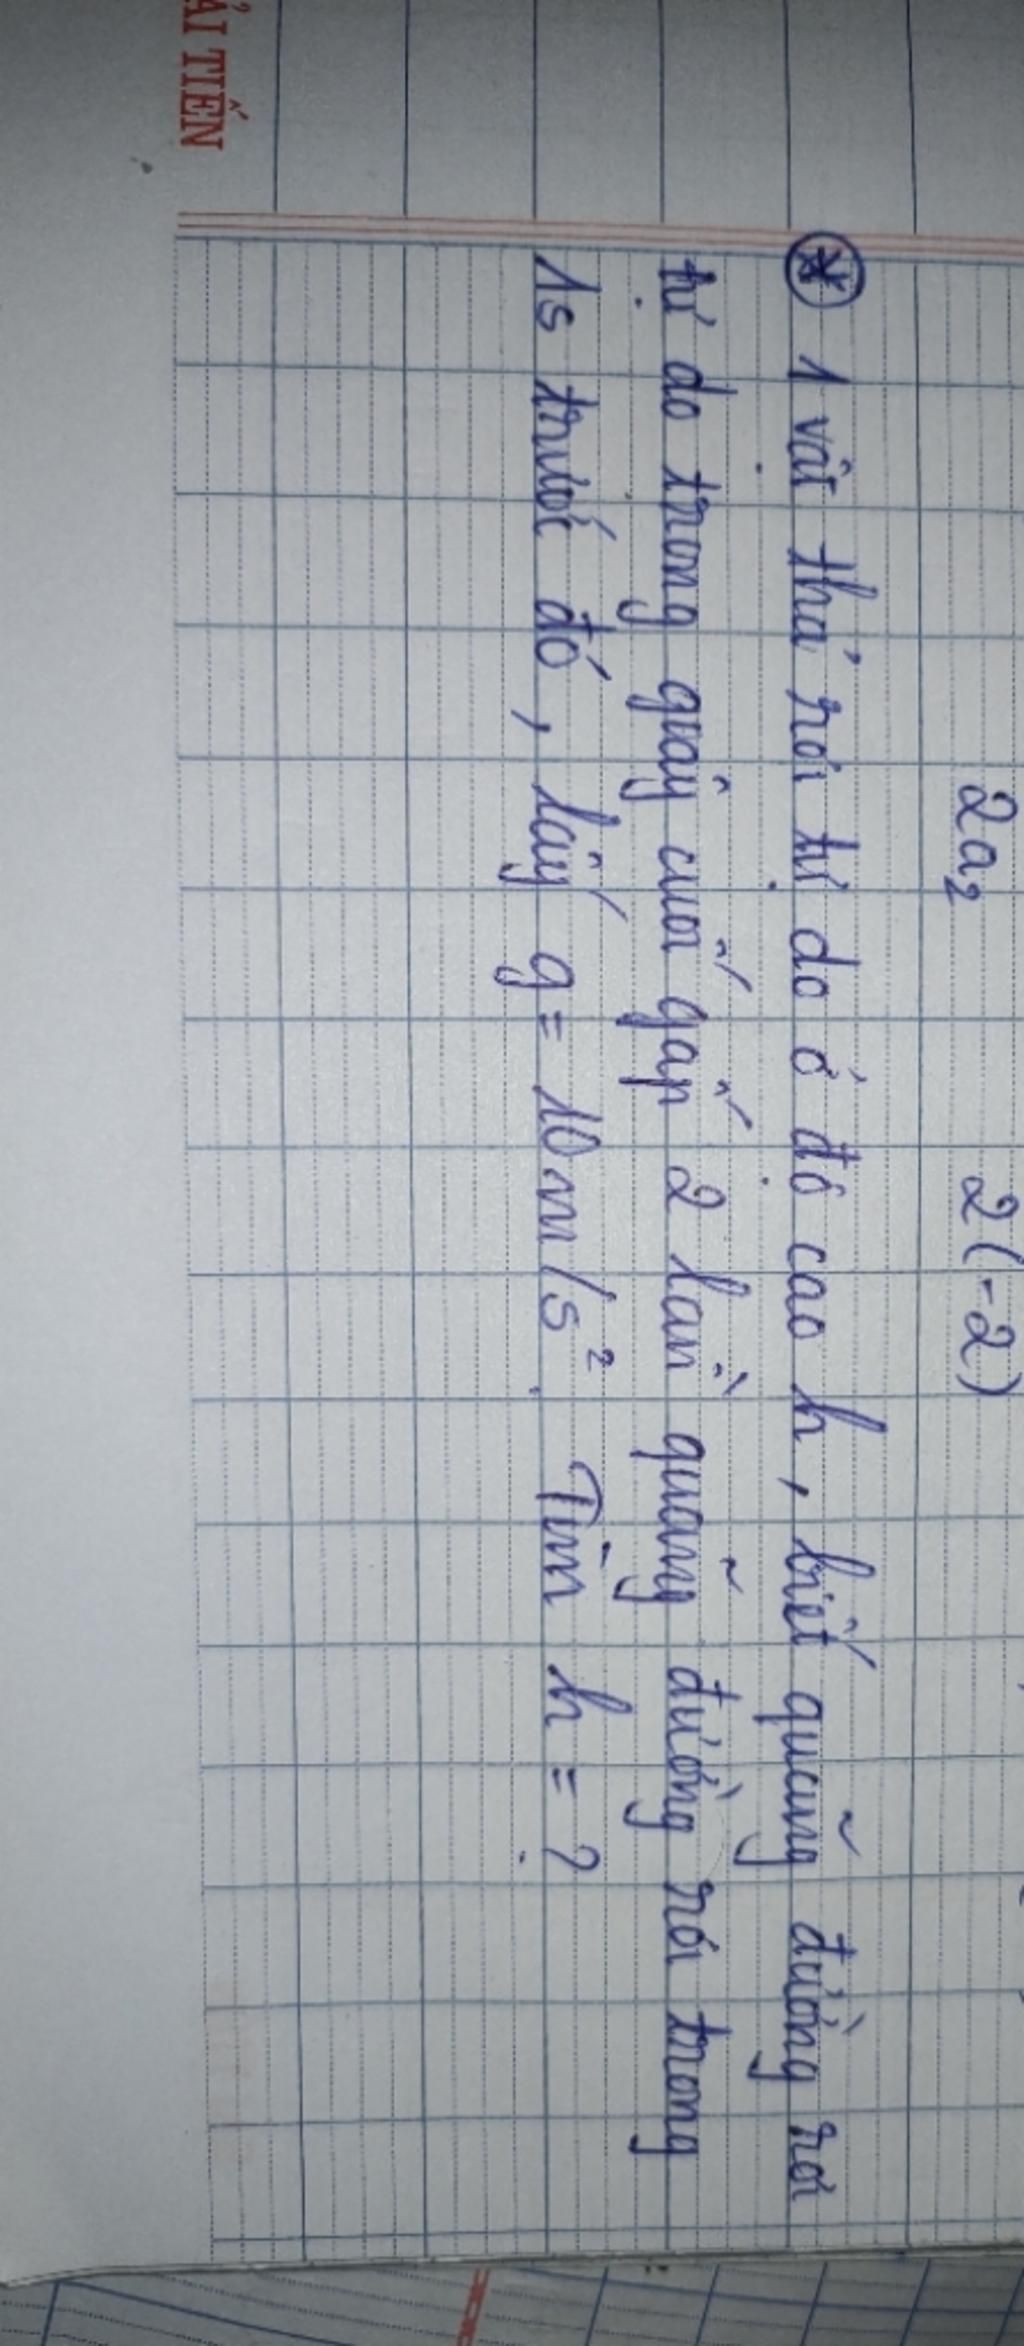 2a₂ 2(-2)
⊛ 1 vật thả rơi tự do ở độ cao h, biết quãng đường rơi
tự do trong giây cuối gấp 2 lần quãng đường rơi trong
1s trước đó, lấy g = 10m/s². Tìm h = ?
ẢI TIẾN